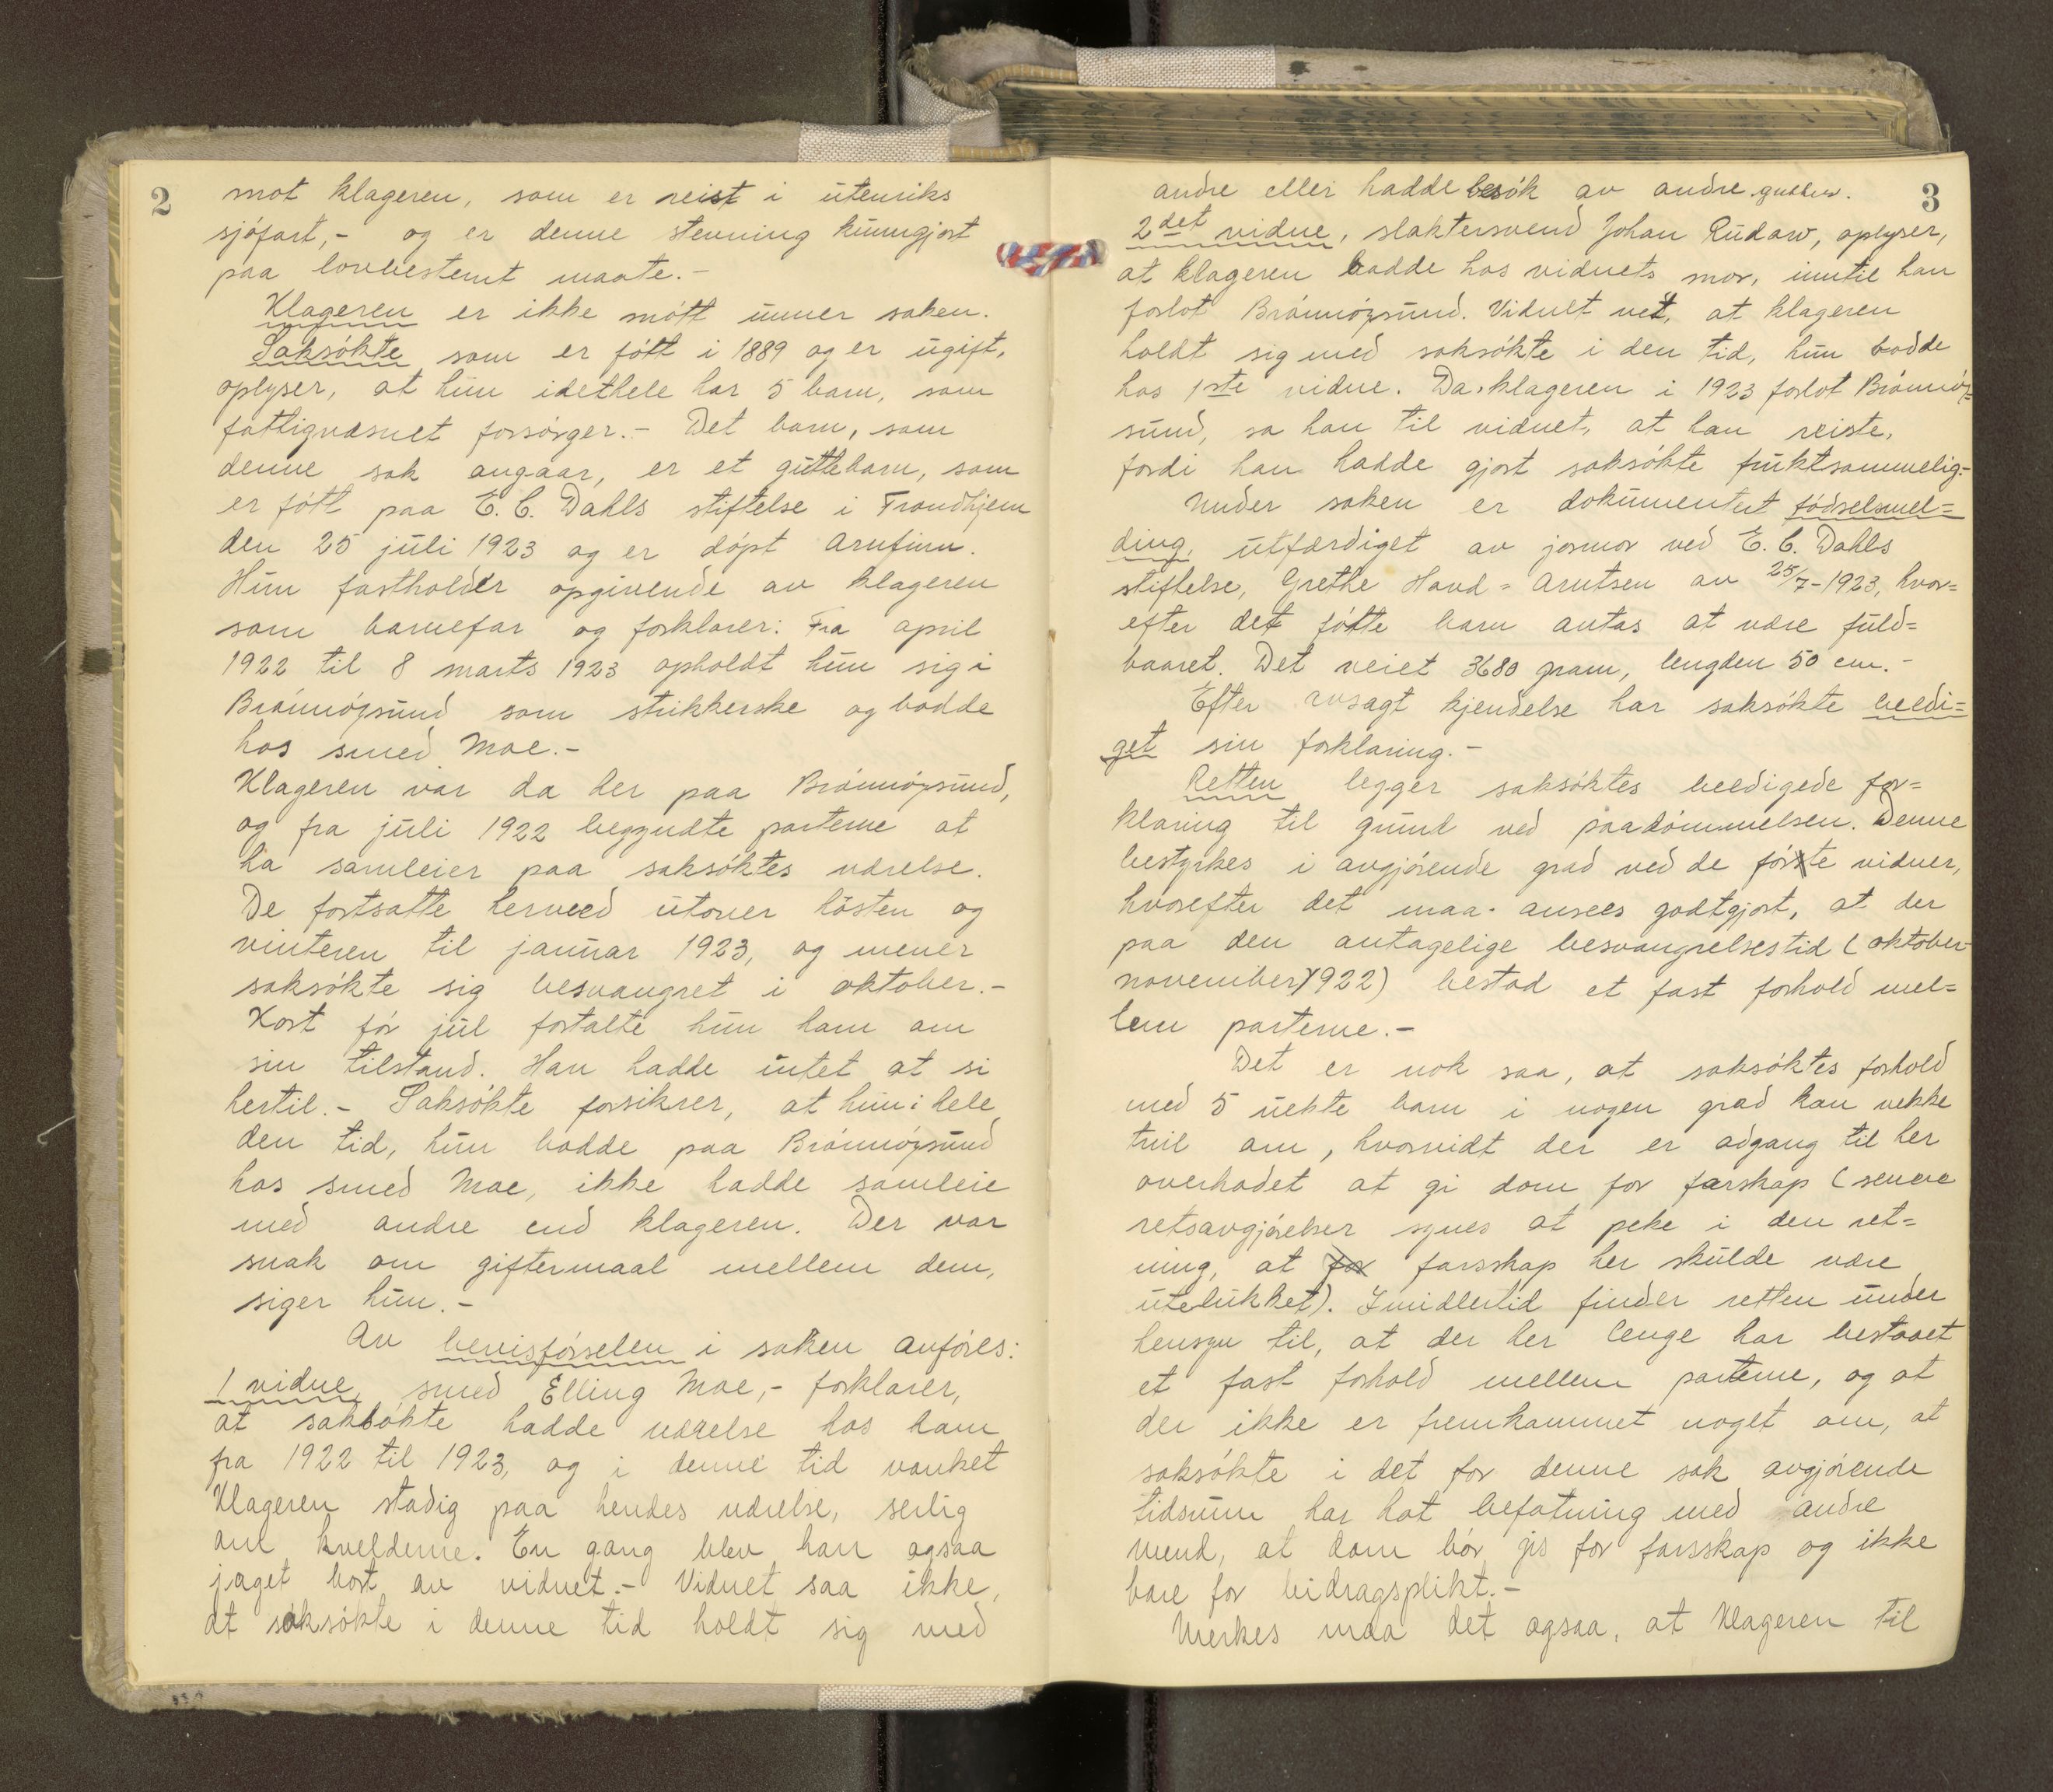 2
mot klageren, som er reist i utenriks
sjöfart,- og er denne stevning kunngjort
paa lovbestemt maate.-
Klageren er ikke mött unner saken.
Saksökte som er fött i 1889 og er ugift,
oplyser, at hun idethele har 5 barn, som
fattigvæsnet forsörger.- Det barn, som
denne sak angaar, er et guttebarn, som
er fött paa E. C. Dahls stiftelse i Trondhjem
den 25 juli 1923 og er döpt Arnfinn.
Hun fastholder opgivende av klageren
som barnefar og forklarer: Fra april
1922 til 8 marts 1923 opholdt hun sig i
Brönnöysund som strikkerske og bodde
hos smed Moe.-
Klageren var da her paa Brönnöysund,
og fra juli 1922 begyndte parterne at
ha samleier paa saksöktes værelse.
De fortsatte herved utover hösten og
vinteren til januar 1923, og mener
saksökte sig besvangret i oktober.-
Kort för jul fortalte hun ham om
sin tilstand. Han hadde intet at si
hertil.- Saksökte forsikrer, at hun i hele
den tid, hun bodde paa Brönnöysund
hos smed Moe, ikke hadde samleie
med andre end klageren. Der var
snak om giftermaal mellem dem,
siger hun.-
Av bevisförselen i saken anföres:
1 vidne, smed Elling Moe,- forklarer,
at saksökte hadde værelse hos ham
fra 1922 til 1923, og i denne tid vanket
Klageren stadig paa hendes værelse, serlig
om kvelderne. En gang blev han ogsaa
jaget bort av vidnet.- Vidnet saa ikke,
at saksökte i denne tid holdt sig med
3
andre eller hadde besök av andre gutter.
2det vidne, slaktersvend Johan Rudaw, oplyser,
at klageren bodde hos vidnets mor, inntil han
forlot Brönnöysund. Vidnet vet, at klageren
holdt sig med saksökte i den tid, hun bodde
hos 1ste vidne. Da klageren i 1923 forlot Brönnöy=
sund, sa han til vidnet, at han reiste,
fordi han hadde gjort saksökte fruktsommelig.-
Under saken er dokumentert födselsmel=
ding, utfærdiget av jormor ved E. C. Dahls
stiftelse, Grethe Hovd = Arntsen av 25/7-1923, hvor=
efter det fötte barn antas at være fuld=
baaret. Det veiet 3680 gram, lengden 50 cm.-
Efter avsagt kjendelse har saksökte beedi=
get sin forklaring.-
Retten legger saksöktes beedigede for=
klaring til grund ved paadömmelsen. Denne
bestyrkes i avgjörende grad ved de förte vidner,
hvorefter det maa ansees godtgjort, at der
paa den antagelige besvangrelsestid (oktober-
november 1922) bestod et fast forhold mel=
lem parterne.-
Det er nok saa, at saksöktes forhold
med 5 uekte barn i nogen grad kan vekke
tvil om, hvorvidt der er adgang til her
overhodet at gi dom for farskap (senere
retsavgjörelser synes at peke i den ret=
ning, at for farsskap her skulde være
utelukket). Imidlertid finder retten under
hensyn til, at der her lenge har bestaaet
et fast forhold mellem parterne, og at
der ikke er fremkommet noget om, at
saksökte i det for denne sak avgjörende
tidsrum har hat befatning med andre
mend, at dom bör gis for farsskap og ikke
bare for bidragsplikt.-
Merkes maa det ogsaa, at Klageren til